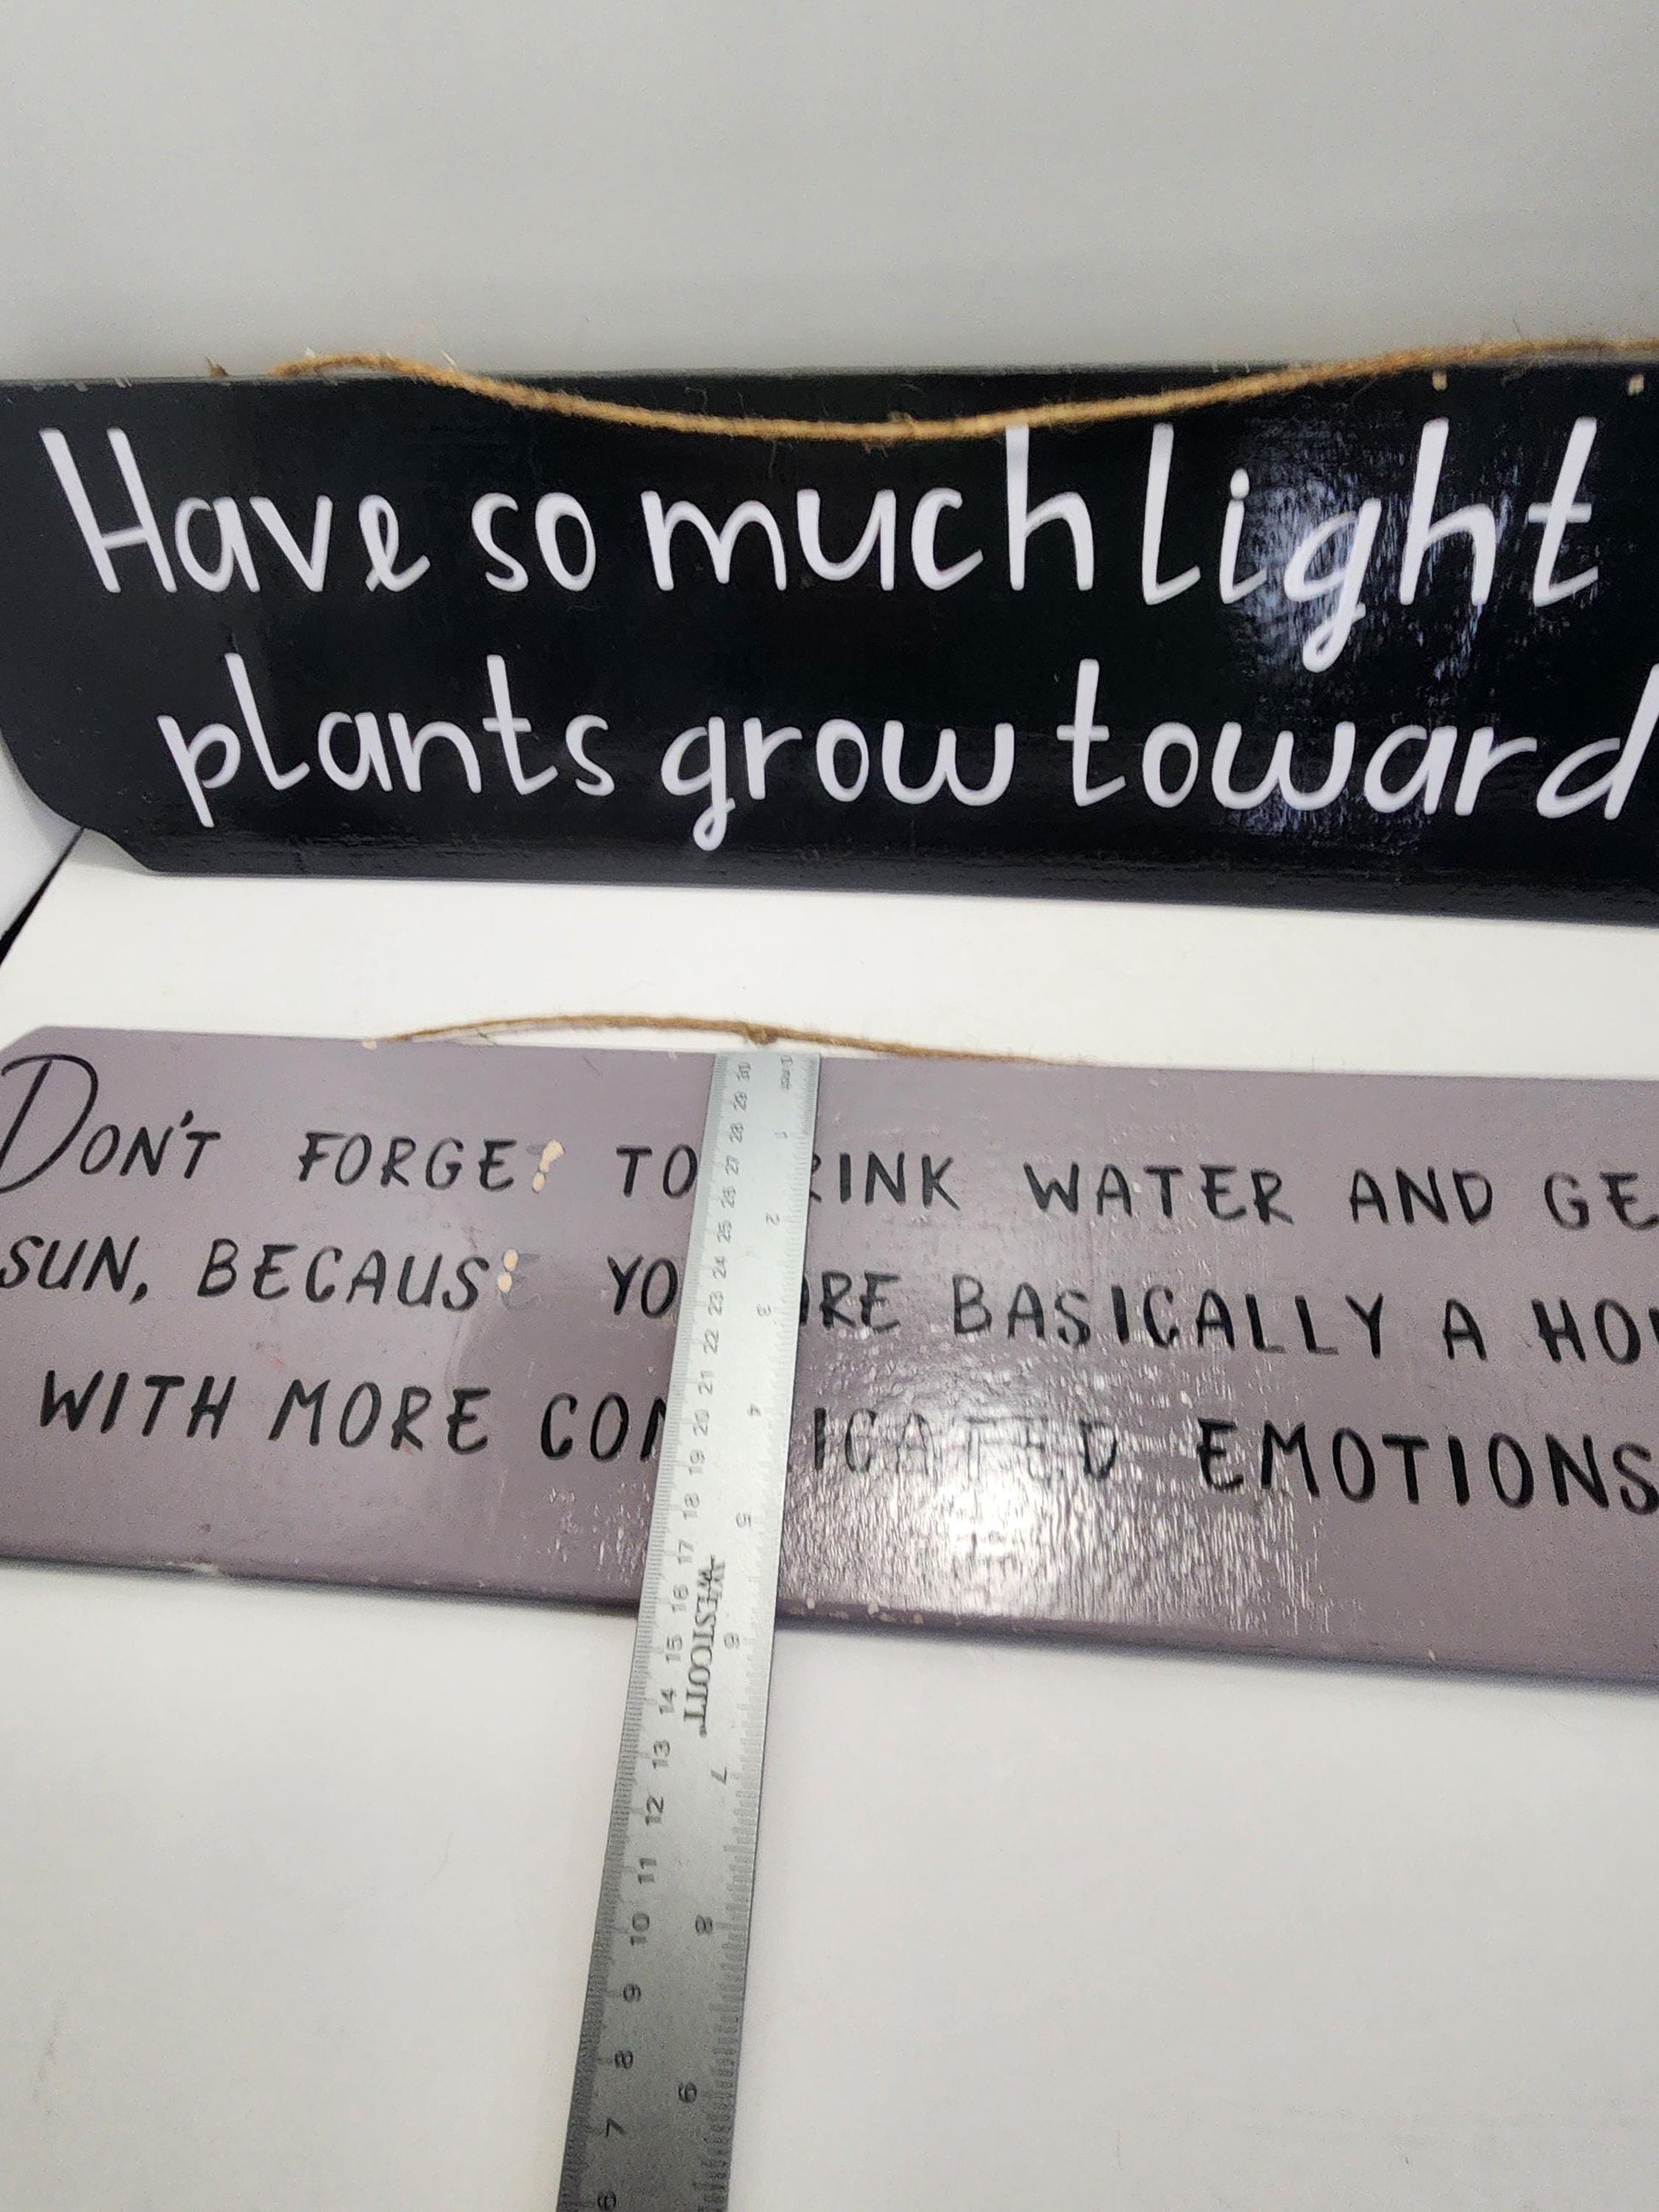 Have so much light
plants grow toward
DON'T FORGE TO RINK WATER AND GE
SUN, BECAUS YO ARE BASICALLY A HO
WITH MORE CO ICATED EMOTIONS
1
2
3
4
5
6
7
8
9
30
29
28
27
26
25
24
23
22
21
20
19
18
17
16
15
14
13
12
11
10
9
8
7
6
WESTCOTT